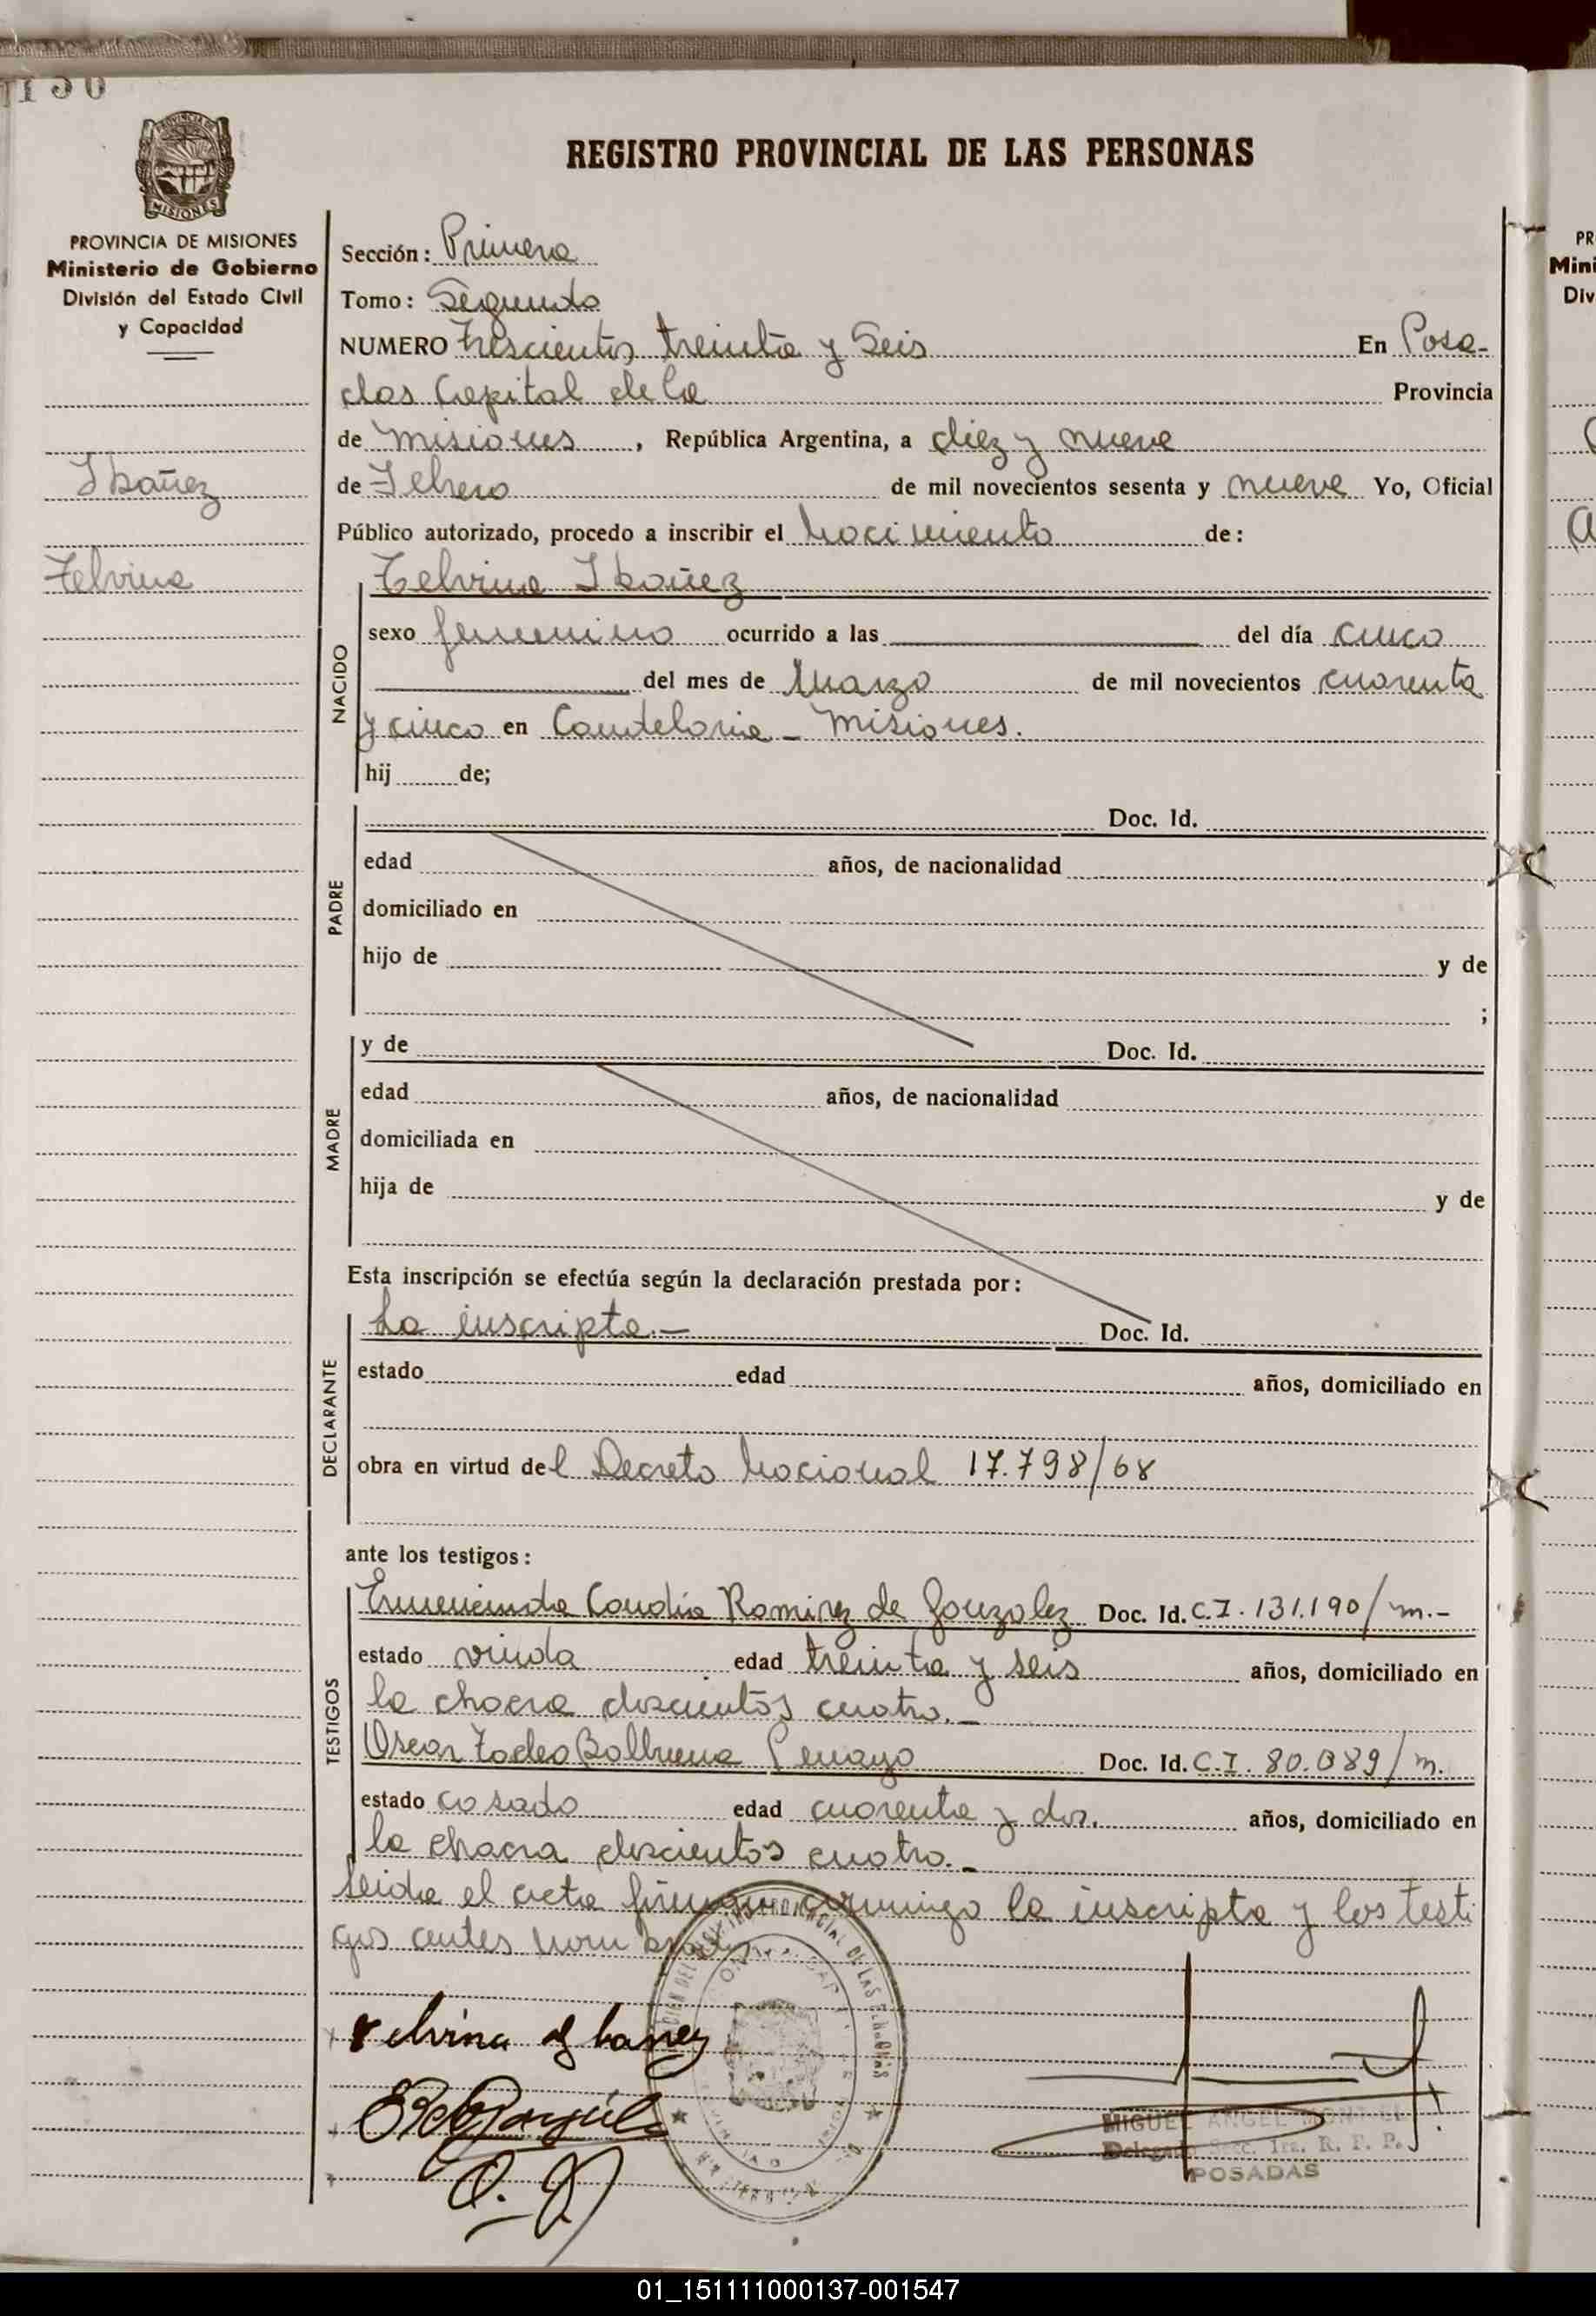 REGISTRO PROVINCIAL DE LAS PERSONAS
PROVINCIA DE MISIONES
Ministerio de Gobierno
División del Estado Civil
y Capacidad
Ibañez
Telvina
Sección: Primera
Tomo: Segundo
NUMERO Trescientos treinta y Seis En Posa-
das Capital de la Provincia
de Misiones, República Argentina, a diez y nueve
de Febrero de mil novecientos sesenta y nueve Yo, Oficial
Público autorizado, procedo a inscribir el Nacimiento de:
NACIDO
Telvina Ibañez
sexo femenino ocurrido a las del día cinco
del mes de Marzo de mil novecientos cuarenta
y cinco en Candelaria - Misiones.
hij de;
PADRE
Doc. Id.
edad años, de nacionalidad
domiciliado en
hijo de y de
;
MADRE
y de Doc. Id.
edad años, de nacionalidad
domiciliada en
hija de y de
Esta inscripción se efectúa según la declaración prestada por:
DECLARANTE
La inscripta.- Doc. Id.
estado edad años, domiciliado en
obra en virtud del Decreto Nacional 17.798/68
ante los testigos:
TESTIGOS
Ermerinda Candia Ramirez de Gonzalez Doc. Id. C.I. 131.190/m.-
estado viuda edad treinta y seis años, domiciliado en
la chacra doscientos cuatro.-
Oscar Tadeo Balbuena Penayo Doc. Id. C.I. 80.089/m.
estado casado edad cuarenta y dos. años, domiciliado en
la chacra doscientos cuatro.-
Leida el acta firman conmigo la inscripta y los testi
gos antes nombrados
Telvina Ibanez
MIGUEL ANGEL
Delegado Secc. 1ra. R. P. P.
POSADAS
01_151111000137-001547